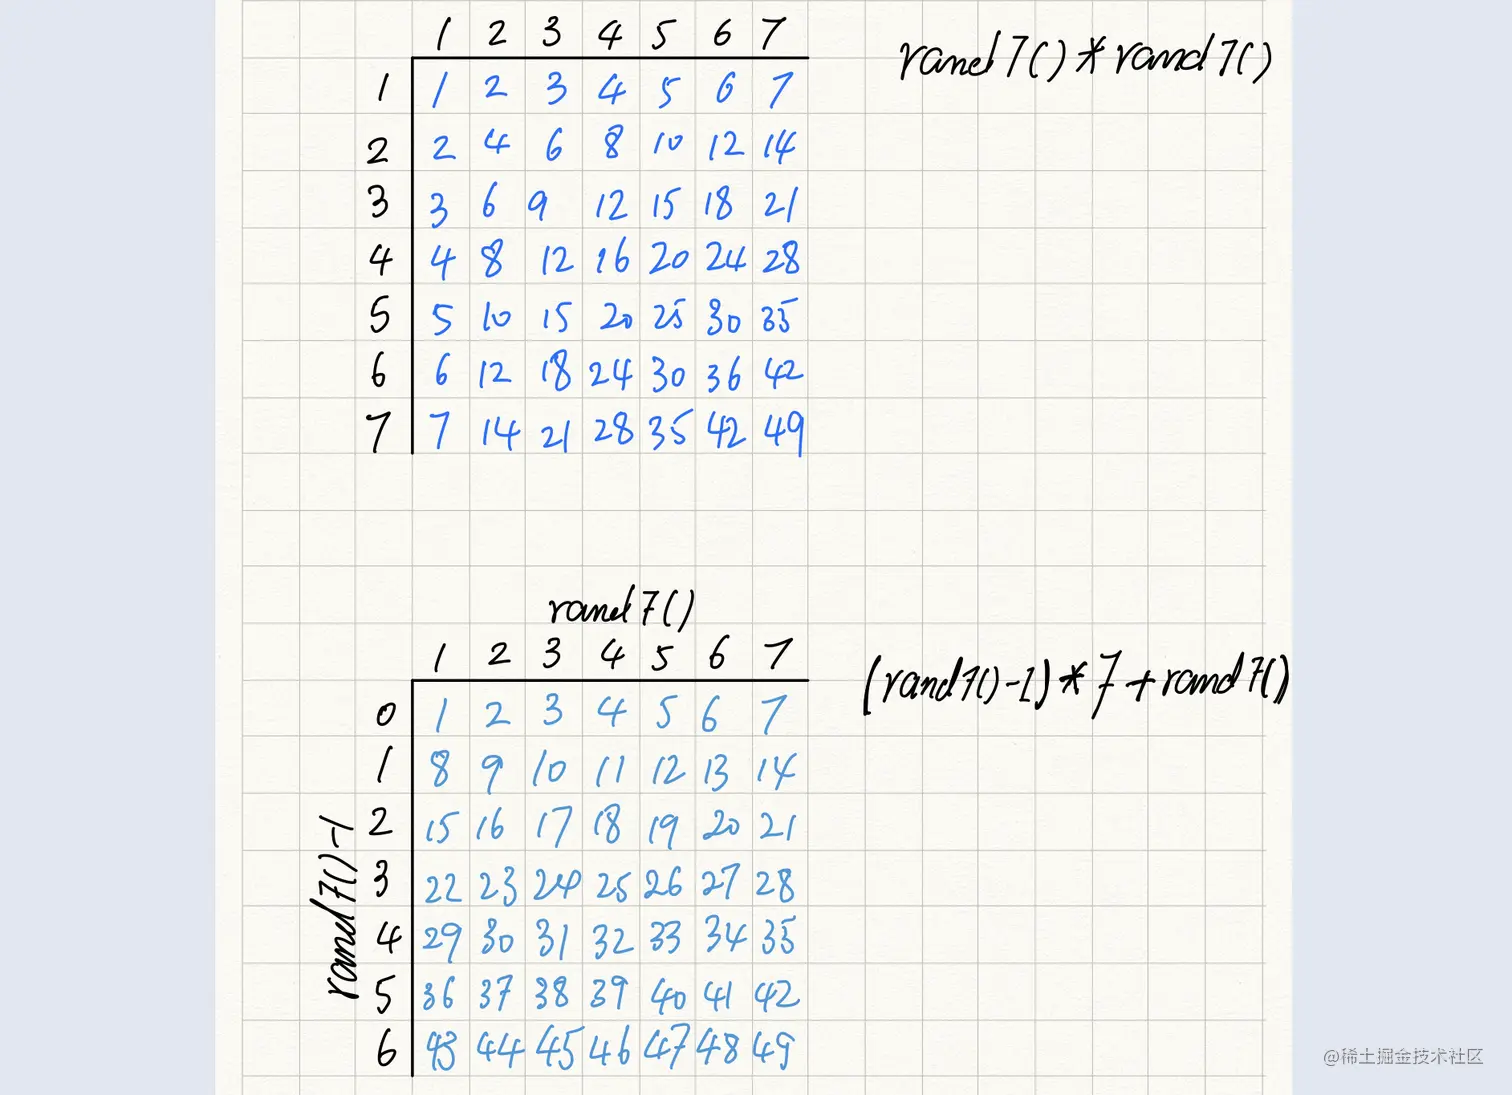 1 2 3 4 5 6 7
rand7()*rand7()
1 1 2 3 4 5 6 7
2 2 4 6 8 10 12 14
3 3 6 9 12 15 18 21
4 4 8 12 16 20 24 28
5 5 10 15 20 25 30 35
6 6 12 18 24 30 36 42
7 7 14 21 28 35 42 49
rand7()
1 2 3 4 5 6 7
(rand7()-1)*7+rand7()
rand7()-1
0 1 2 3 4 5 6 7
1 8 9 10 11 12 13 14
2 15 16 17 18 19 20 21
3 22 23 24 25 26 27 28
4 29 30 31 32 33 34 35
5 36 37 38 39 40 41 42
6 43 44 45 46 47 48 49
@稀土掘金技术社区